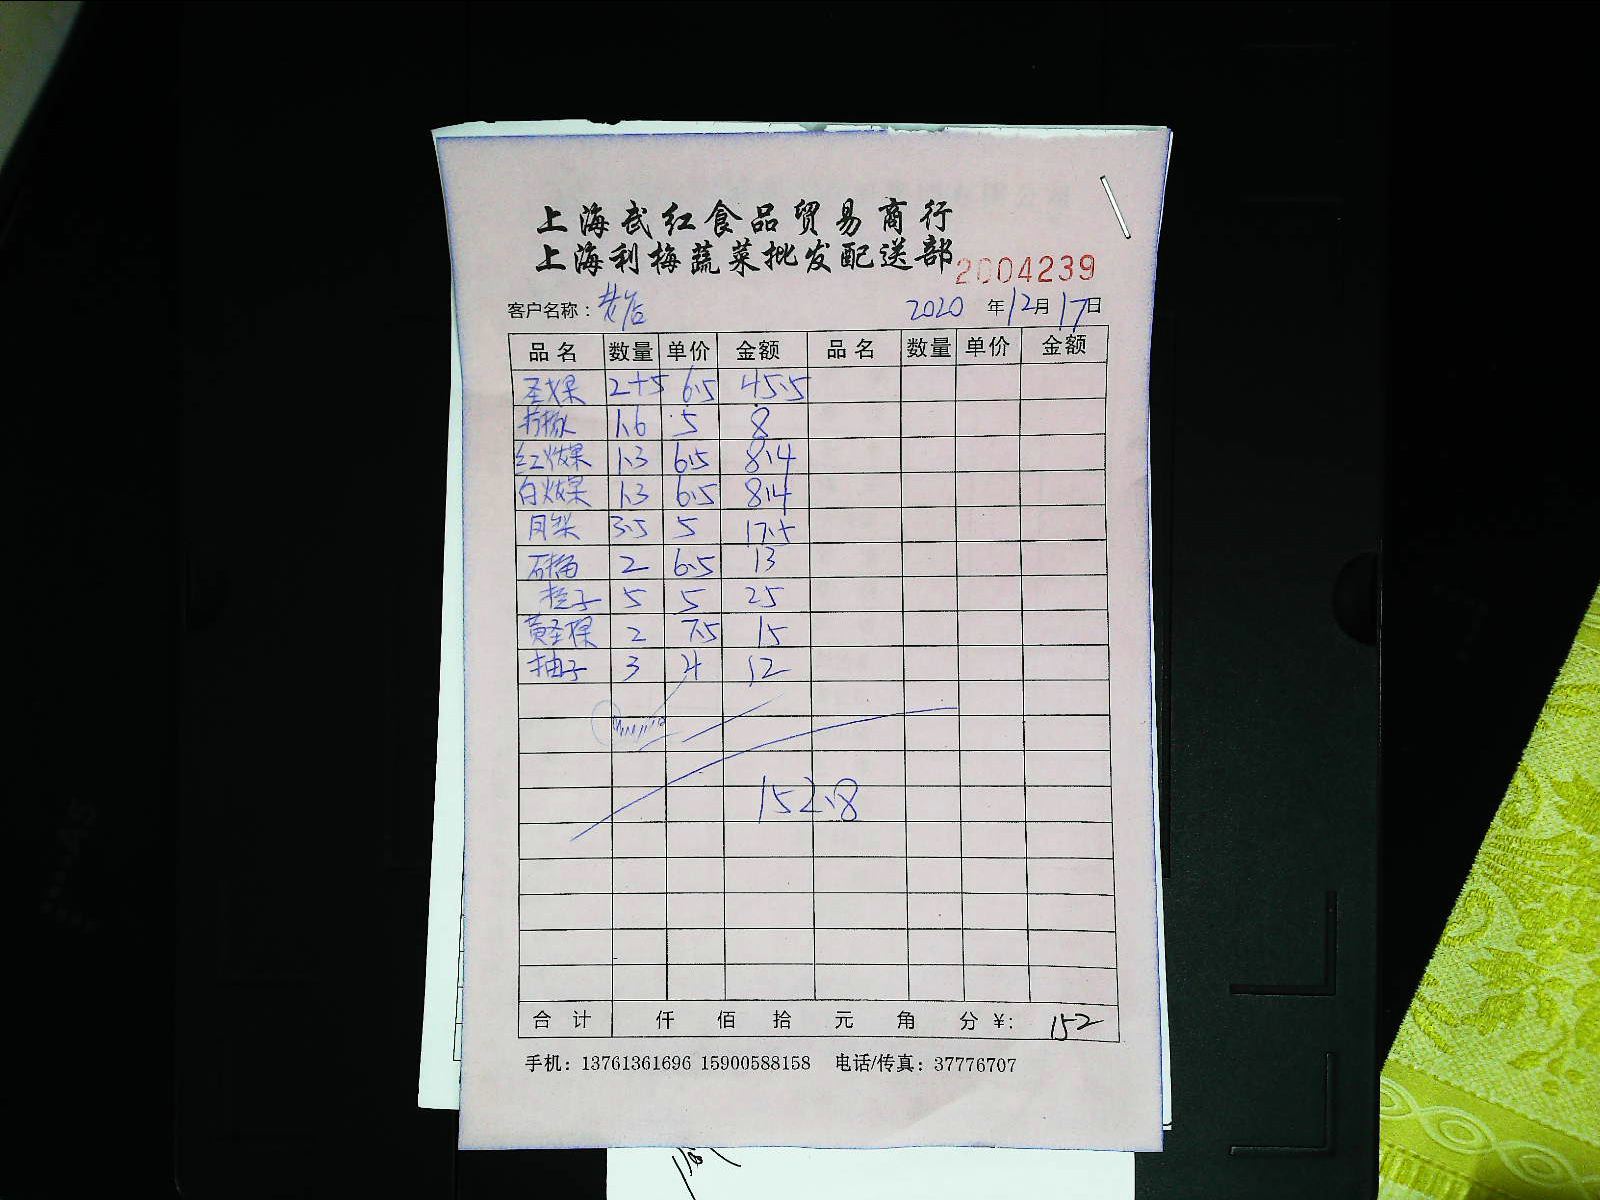 上海武红食品贸易商行
上海利梅蔬菜批发配送部
2004239
客户名称： 2020 年 12 月 17 日
品名 数量 单价 金额 品名 数量 单价 金额
圣女果 2+5 6.5 45.5
柠檬 1.6 5 8
红火龙果 1.3 6.5 8.4
白火龙果 1.3 6.5 8.4
3.5 5 17.5
2 6.5 13
子 5 5 25
黄圣果 2 7.5 15
柚子 3 4 12
152.8
合计 仟 佰 拾 元 角 分 ¥: 152
手机：13761361696 15900588158 电话/传真：37776707